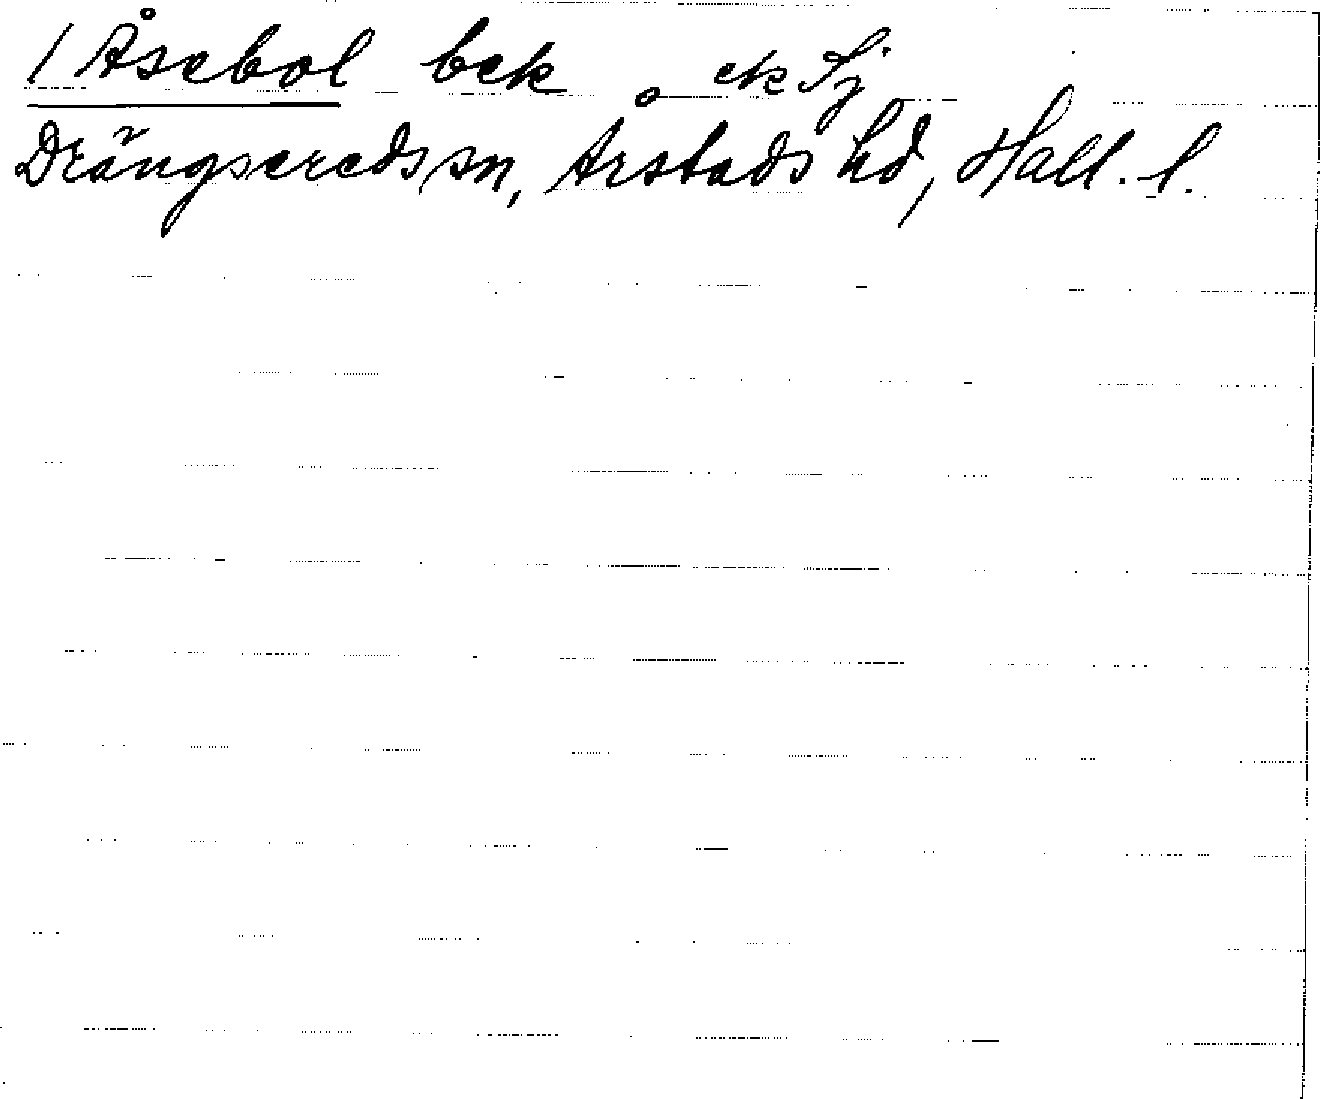 / Åsebol bek ek Sj
Drängsereds sn, Årstads hd, Hall. l.